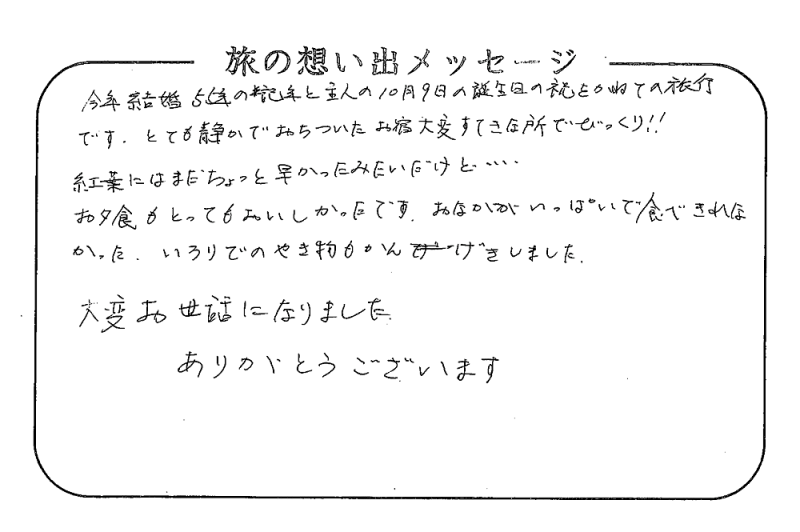 旅の想い出メッセージ
今年結婚55年の記年と主人の10月9日の誕生日の祝をかねての旅行
です. とても静かでおちついたお宿大変すてきな所でびっくり!!
紅葉にはまだちょっと早かったみたいだけど・・・・
お夕食もとってもおいしかったです. おなかがいっぱいで食べきれな
かった. いろりでのやき物もかんげきしました.
大変お世話になりました
ありがとうございます